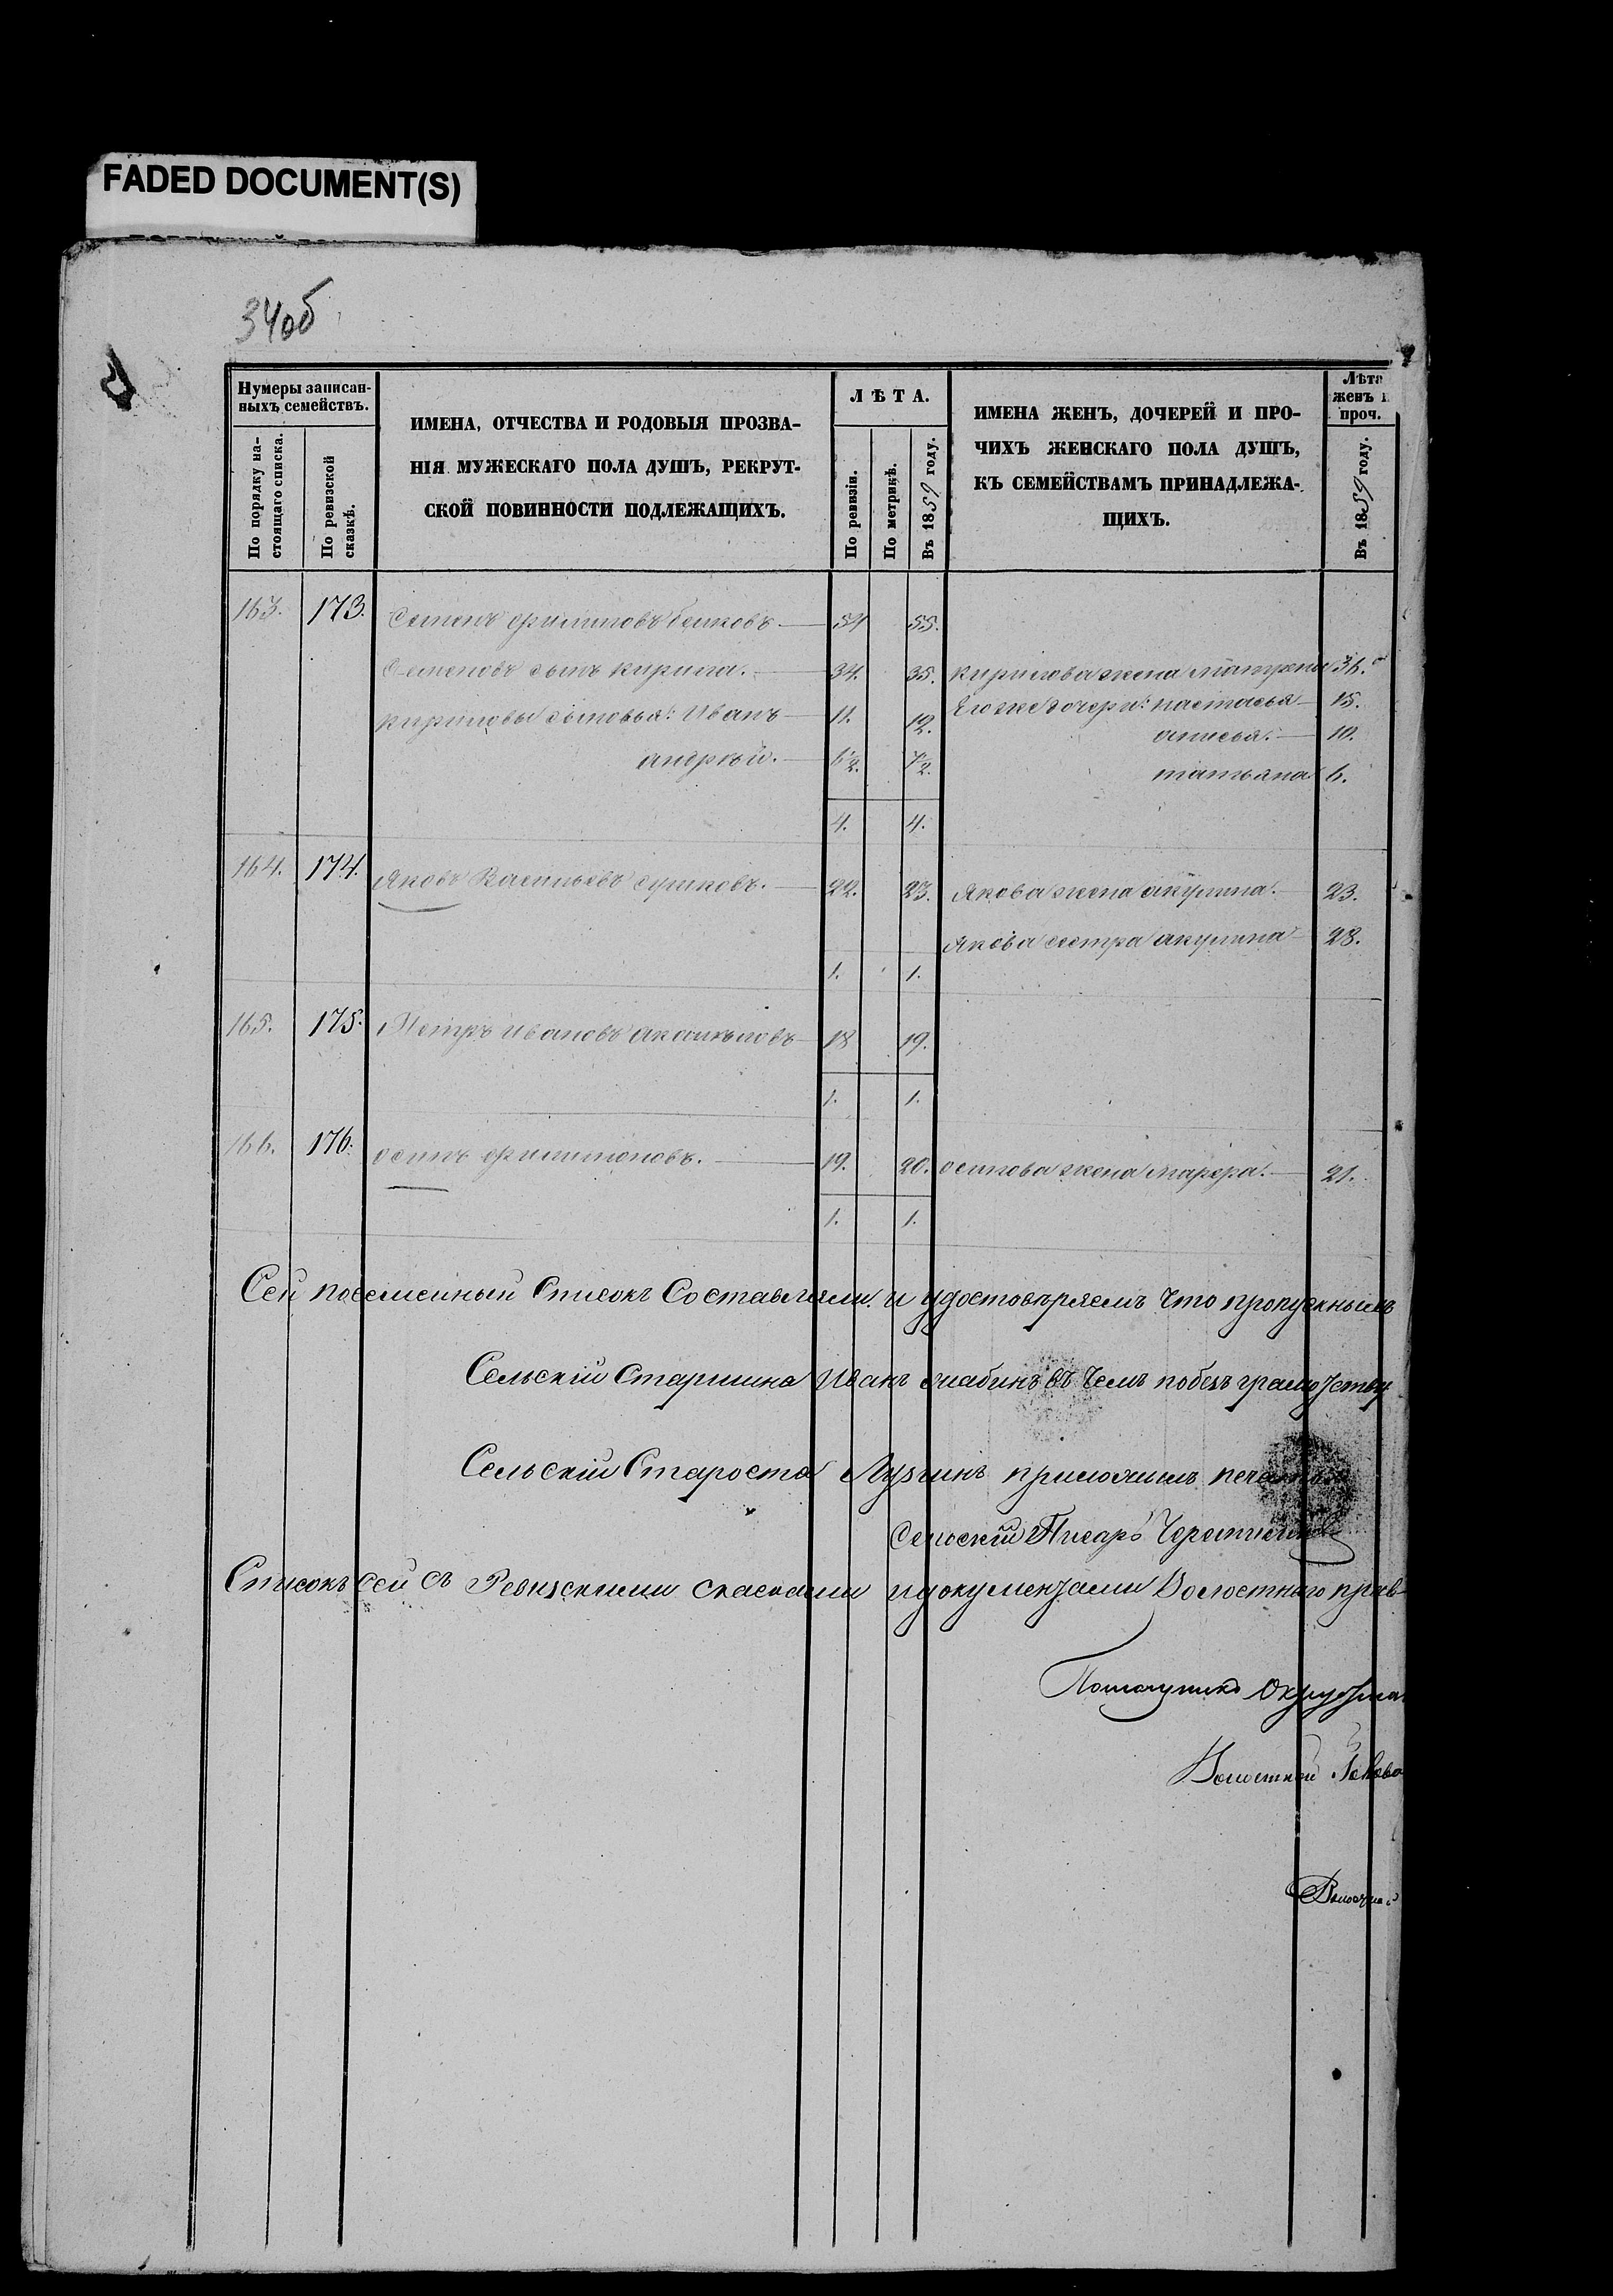 FADED DOCUMENT(S)
34об
Нумеры записан-
ныхъ семействъ.
По порядку на-
стоящаго списка.
По ревизской
сказкѣ.
ИМЕНА, ОТЧЕСТВА И РОДОВЫЯ ПРОЗВА-
НІЯ МУЖЕСКАГО ПОЛА ДУШЪ, РЕКРУТ-
СКОЙ ПОВИННОСТИ ПОДЛЕЖАЩИХЪ.
ЛѢТА.
По ревизіи.
По метрикѣ.
Въ 1859 году.
ИМЕНА ЖЕНЪ, ДОЧЕРЕЙ И ПРО-
ЧИХЪ ЖЕНСКАГО ПОЛА ДУШЪ,
КЪ СЕМЕЙСТВАМЪ ПРИНАДЛЕЖА-
ЩИХЪ.
Лѣта
женъ
проч.
Въ 1859 году.
163. 173. Семенъ 55.
Семеновъ сынъ кирила. 34. 35. кирилова жена матрена 36.
кириловы сыновья: Иванъ 11. 12. Его же дочери: настасья 15.
андрѣй. анисья. 10.
татьяна 6.
4. 4.
164. 174. Яковъ Васильевъ сушковъ. 22. 23. Якова жена акулина. 23.
Якова сестра акулина 28.
1. 1.
165. 175. Петръ ивановъ 18 19.
1. 1.
166. 176. осипъ филимоновъ. 19. 20. осипова жена марфа. 21.
1. 1.
Сей посемейный Списокъ Составляли и удостовѣряемъ что
Сельскій Старшина Иванъ въ чемъ
Сельскій Староста
Сельскій Писарь
Списокъ сей съ Ревизскими сказками и документами Волостнаго прав
Помощникъ Окружна
Волостной Голова